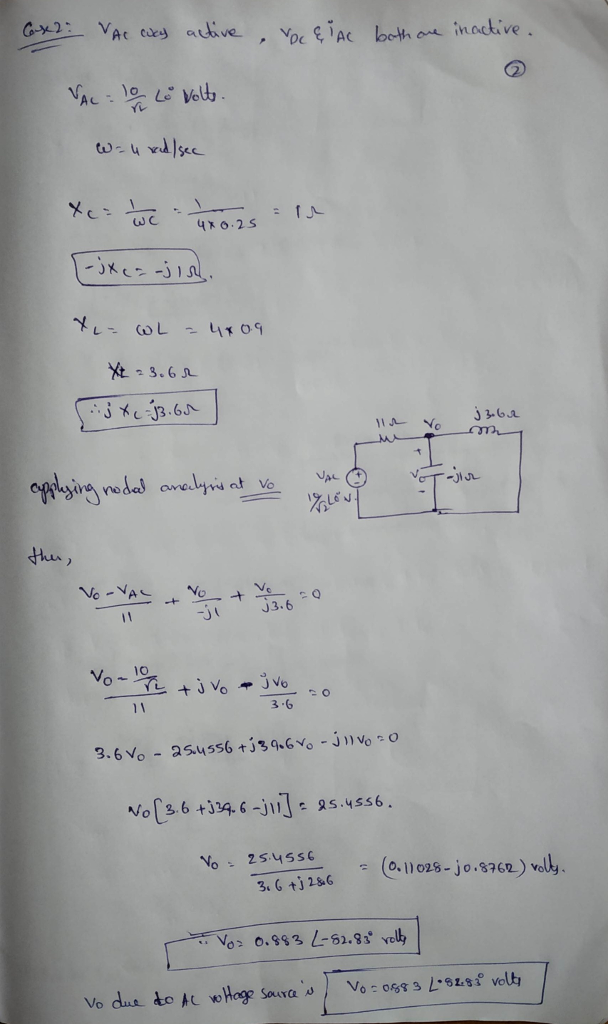 Case2: VAC was active, VDC & iAC both are inactive.
②
VAC = 10/√2 ∠0° Volts.
ω = 4 rad/sec
XC = 1/ωC = 1/4×0.25 = 1Ω
-jXC = -j1Ω.
XL = ωL = 4×0.9
XL = 3.6Ω
∴ jXL = j3.6Ω
11Ω Vo j3.6Ω
+
applying nodal analysis at Vo
VAC + Vo -j1Ω
10/√2 ∠0° V - -
then,
Vo-VAC/11 + Vo/-j1 + Vo/j3.6 = 0
Vo - 10/√2 /11 + jVo - jVo/3.6 = 0
3.6Vo - 25.4556 + j39.6Vo - j11Vo = 0
Vo[3.6 + j39.6 - j11] = 25.4556.
Vo = 25.4556/3.6 + j28.6 = (0.11028 - j0.8762) volts.
∴ Vo = 0.883 ∠-82.83° volts
Vo due to AC voltage source is Vo = 0.883 ∠-82.83° volts